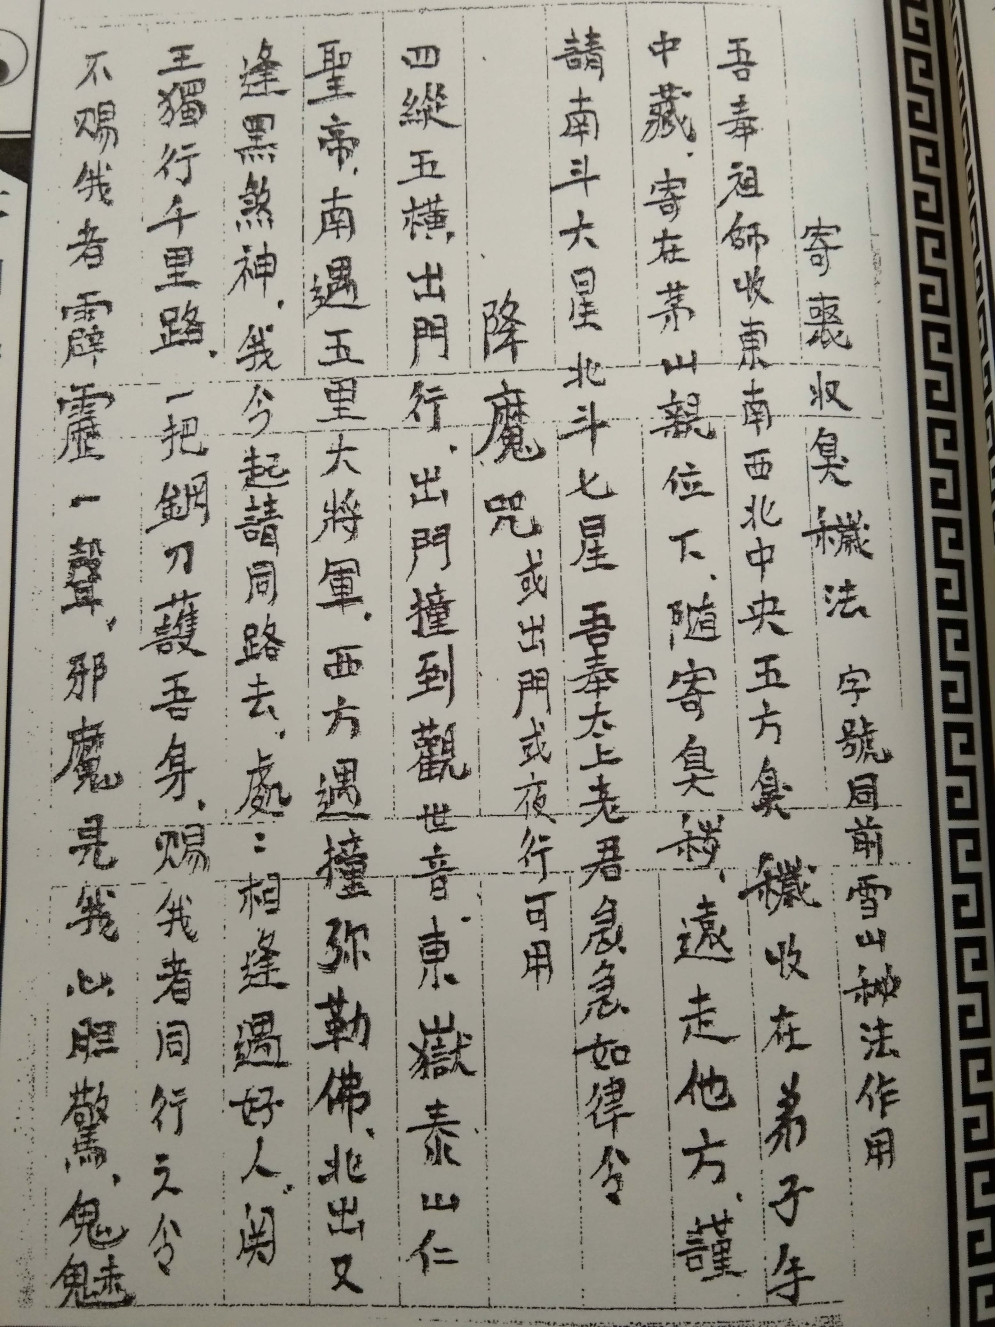 寄衰收臭穢法 字號同前雪山秘法作用
吾奉祖師收東南西北中央五方臭穢收在弟子年
中藏.寄在茅山親位下、隨寄臭穢、遠走他方、謹
請南斗大星北斗七星 吾奉太上老君急急如律令
降魔咒 或出門或夜行可用
四縱五橫、出門行、出門撞到觀世音、東嶽泰山仁
聖帝、南遇五里大將軍、西方遇撞弥勒佛、北出又
逢黑煞神、我今起請同路去、處〻相逢遇好人、関
王獨行千里路、一把鋼刀護吾身、賜我者同行之令
不賜我者霹靂一聲、邪魔見我心胆驚、鬼魅